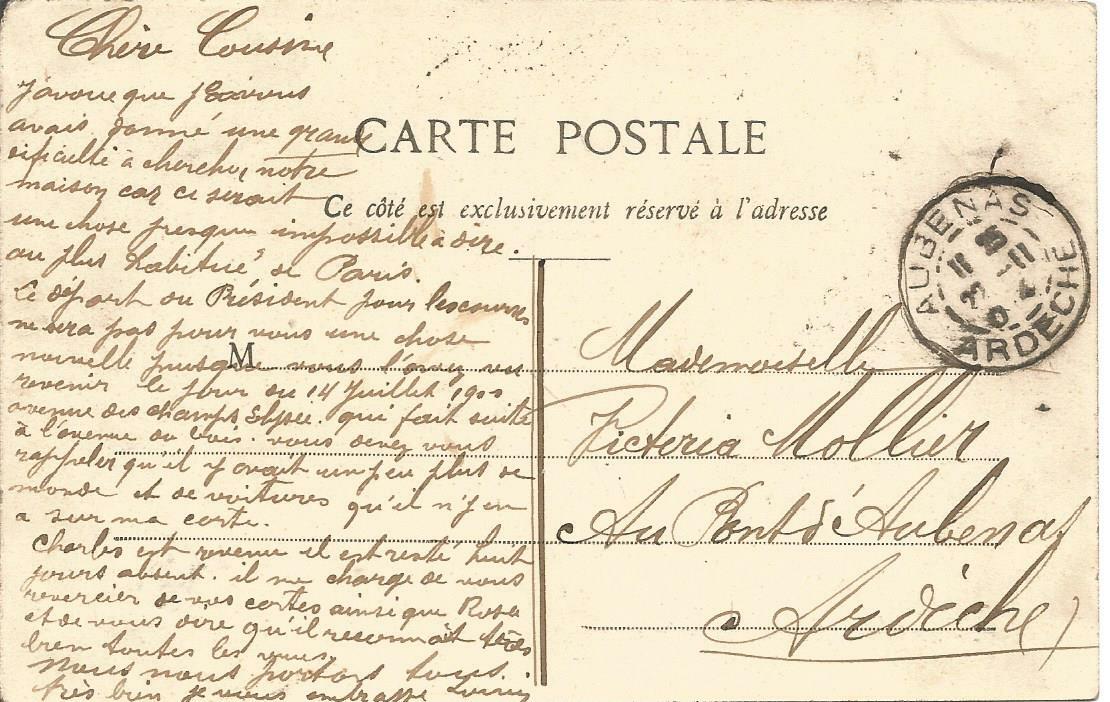 Chère Cousine
J'avoue que je vous
avais donné une grande
dificulté à chercher notre
maison car ce serait
une chose presque impossible à dire
au plus habitué de Paris.
Le départ du Président pour les courses
ne sera pas pour vous une chose
nouvelle puisque vous l'avez vu
revenir le jour du 14 Juillet 1900
avenue des champs Elysee qui fait suite
à l'avenue du bois. vous devez vous
rappeler qu'il y avait un peu plus de
monde et de voitures qu'il n'y en
a sur ma carte.
Charles est revenu il est resté huit
jours absent. il me charge de vous
remercier de vos cartes ainsi que Rosa
et de vous dire qu'il reconnait très
bien toutes les vues.
Nous nous portons tous
très bien je vous embrasse
CARTE POSTALE
Ce côté est exclusivement réservé à l'adresse
M
Mademoiselle
Victoria Mollier
Au Pont d'Aubenas
Ardèche
AUBENAS
ARDECHE